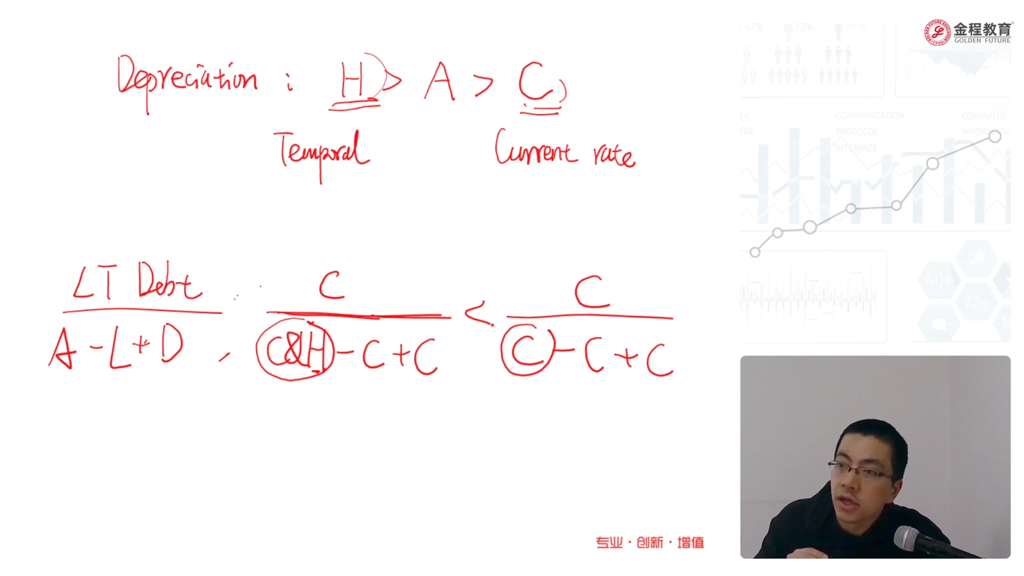 金程教育
GOLDEN FUTURE
Depreciation : H > A > C
Temporal
Current rate
LT Debt
A - L + D
,
C
C&H - C + C
<
C
C - C + C
COMMUNICATION
PROTOCOL
INTERFACE
专业·创新·增值